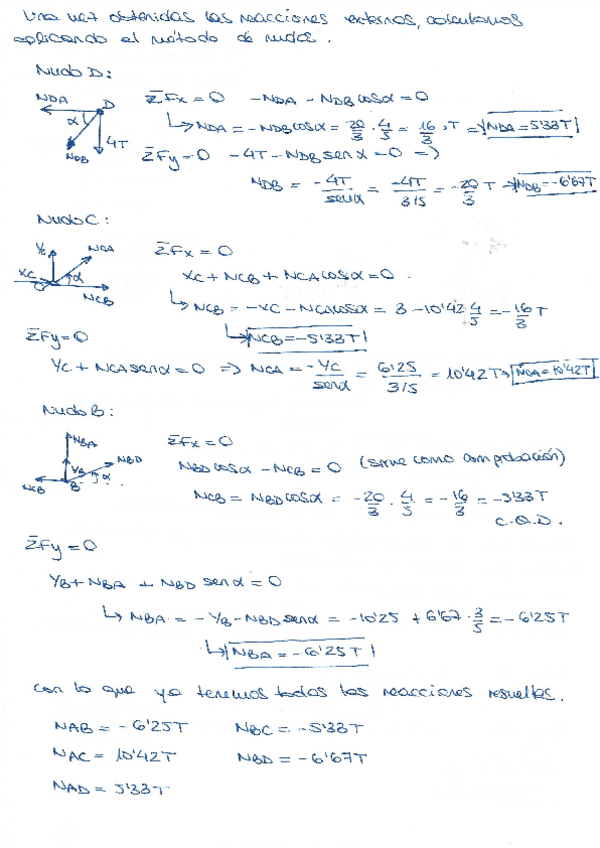 Una vez obtenidas las reacciones externas, calculamos
aplicando el método de nudos.
Nudo D:
NDA D α NDB 4T
ΣFx = 0 -NDA - NDB cosα = 0
↳ NDA = -NDB cosα = 20/3 · 4/5 = 16/3 T ⇒ NDA = 5'33T
ΣFy = 0 -4T - NDB senα = 0 ⇒
NDB = -4T/senα = -4T/3/5 = -20/3 T → NDB = -6'67T
Nudo C:
YC NCA XC C α NCB
ΣFx = 0
XC + NCB + NCA cosα = 0.
↳ NCB = -XC - NCA cosα = 3 - 10'42 · 4/5 = -16/3 T
↳ NCB = -5'33T
ΣFy = 0
YC + NCA senα = 0 ⇒ NCA = -YC/senα = 6'25/3/5 = 10'42T → NCA = 10'42T
Nudo B:
NBA NBD YB NCB B α
ΣFx = 0
NBD cosα - NCB = 0 (sirve como comprobación)
NCB = NBD cosα = -20/3 · 4/5 = -16/3 = -5'33T
C.Q.D.
ΣFy = 0
YB + NBA + NBD senα = 0
↳ NBA = -YB - NBD senα = -10'25 + 6'67 · 3/5 = -6'25T
↳ NBA = -6'25T
con lo que ya tenemos todas las reacciones resueltas.
NAB = -6'25T NBC = -5'33T
NAC = 10'42T NBD = -6'67T
NAD = 5'33T